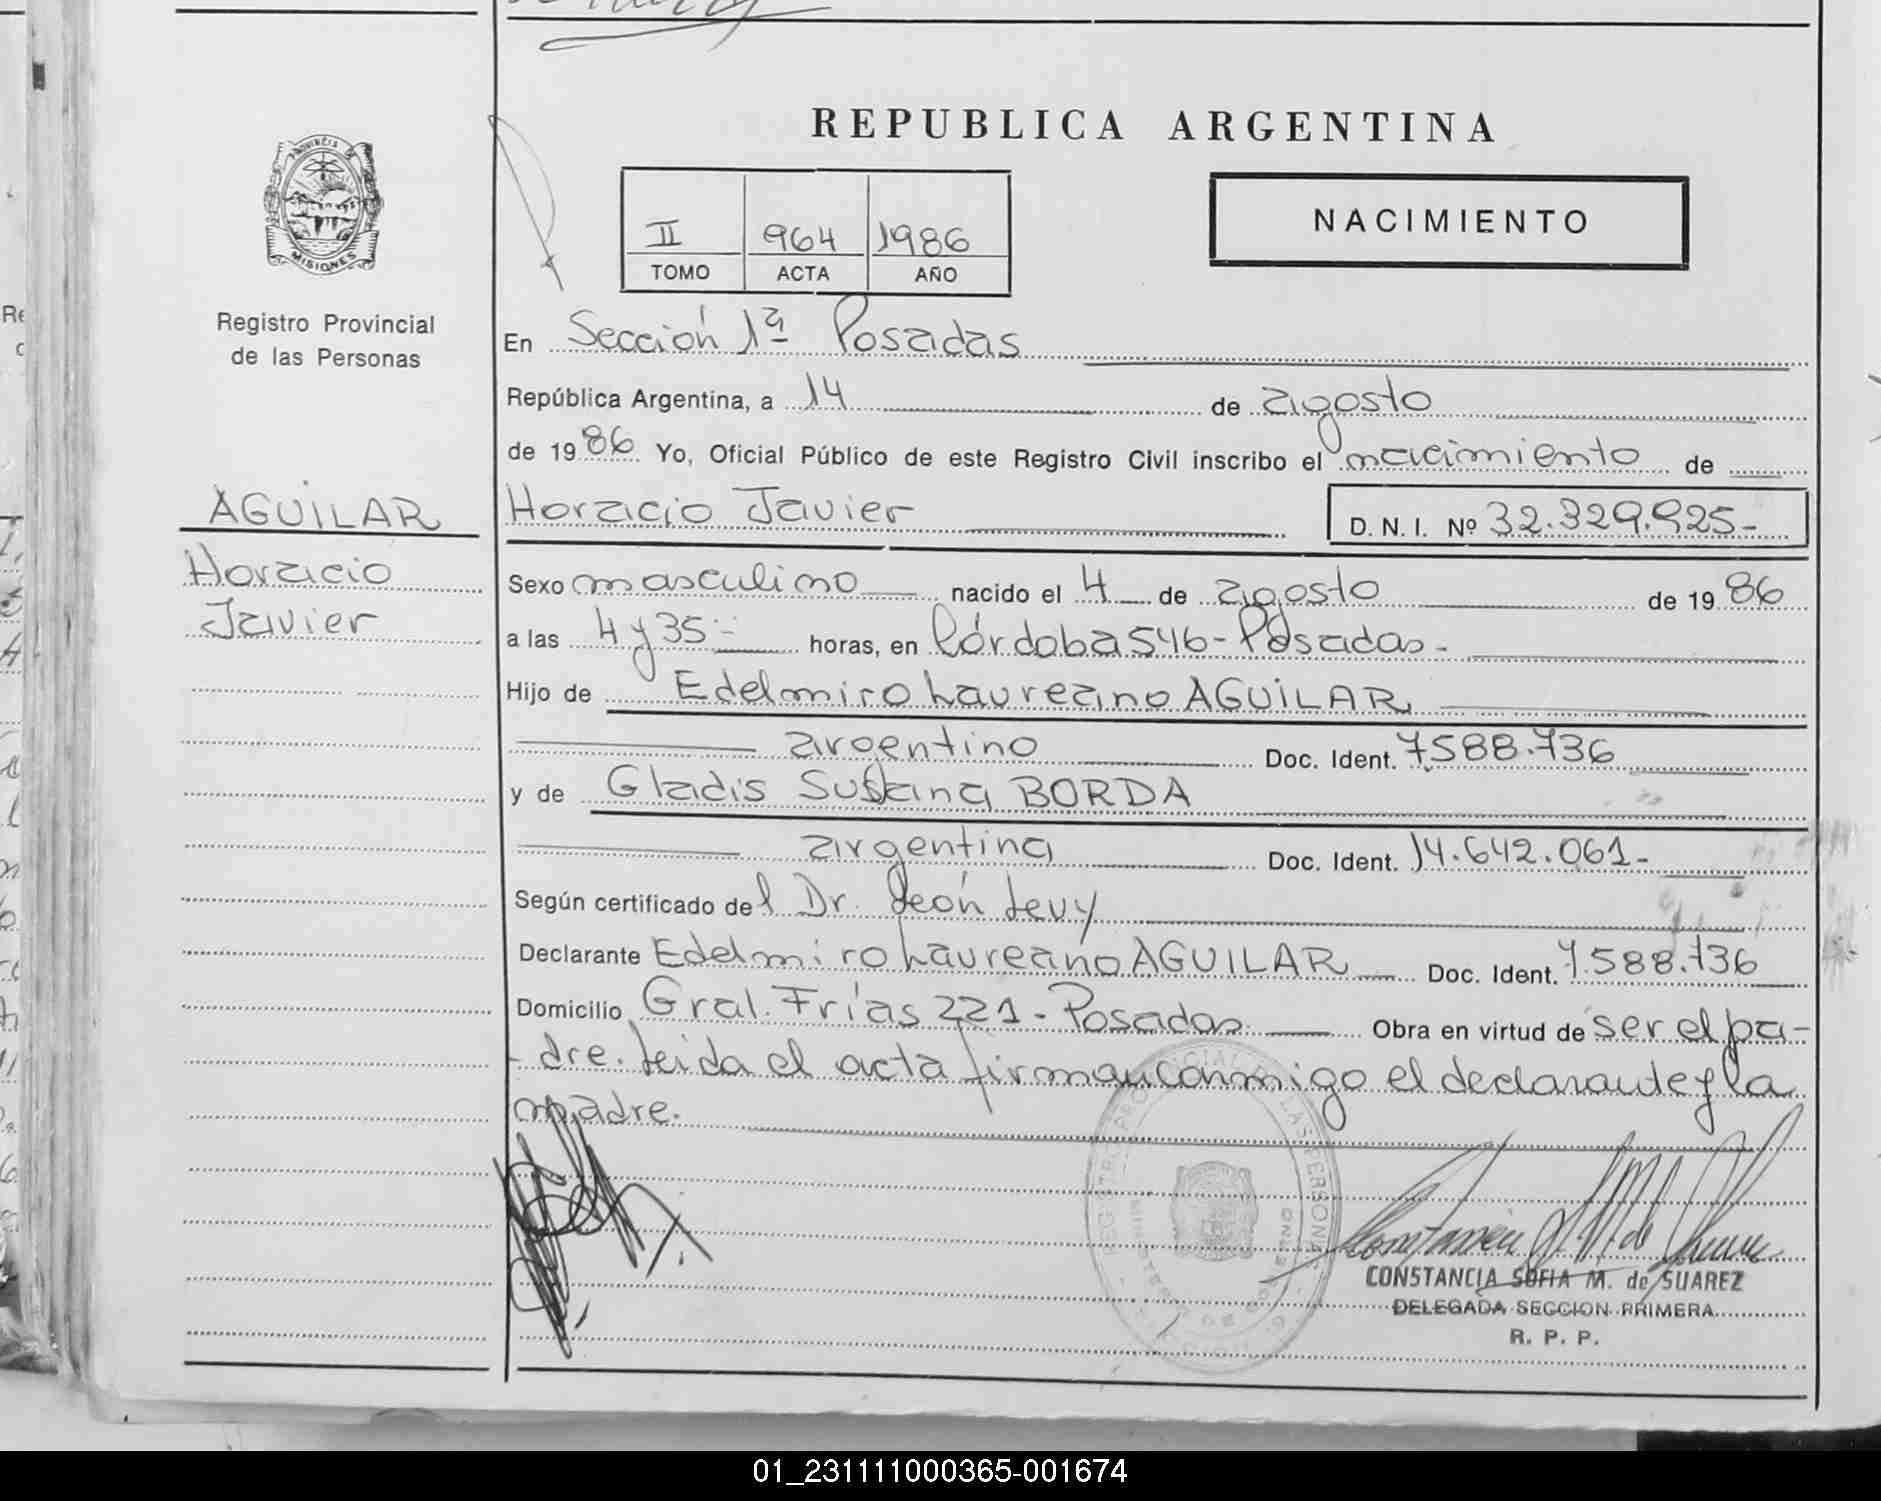 REPUBLICA ARGENTINA
PROVINCIA DE
MISIONES
Registro Provincial
de las Personas
II 964 1986
TOMO ACTA AÑO
NACIMIENTO
En Sección 1ª Posadas
República Argentina, a 14 de agosto
de 1986 Yo, Oficial Público de este Registro Civil inscribo el nacimiento de
AGUILAR
Horacio
Javier
Horacio Javier D. N. I. Nº 32.329.925-
Sexo masculino nacido el 4 de agosto de 1986
a las 4 y 35 horas, en Córdoba 546 - Posadas -
Hijo de Edelmiro Laureano AGUILAR
argentino Doc. Ident. 7.588.736
y de Gladis Susana BORDA
argentina Doc. Ident. 14.642.061-
Según certificado del Dr. León Levy
Declarante Edelmiro Laureano AGUILAR Doc. Ident. 7.588.736
Domicilio Gral. Frías 221 - Posadas Obra en virtud de ser el pa-
dre. Leida el acta firman conmigo el declarante y la
madre.
CONSTANCIA SOFIA M. de SUAREZ
DELEGADA SECCION PRIMERA
R. P. P.
01_231111000365-001674